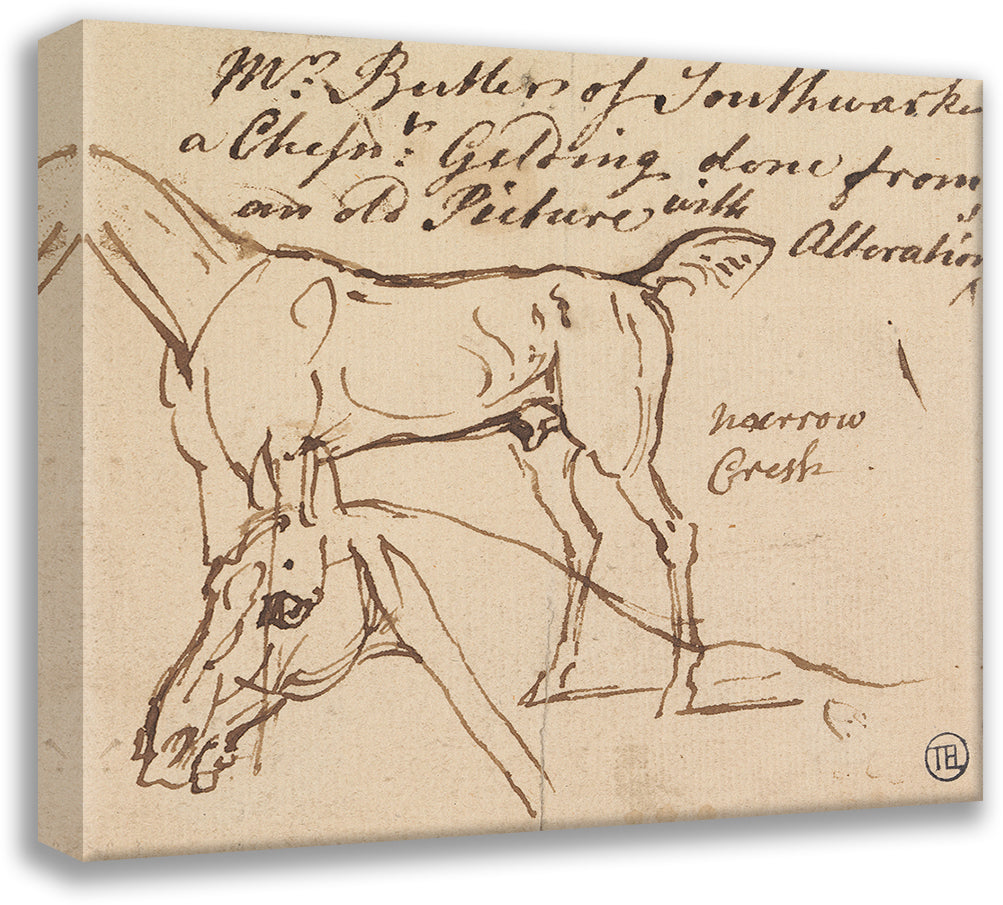 Mr. Butler of Southwarke
a Chesnt: Gelding done from
an old Picture with
Alteration
narrow
Cresk
TEL